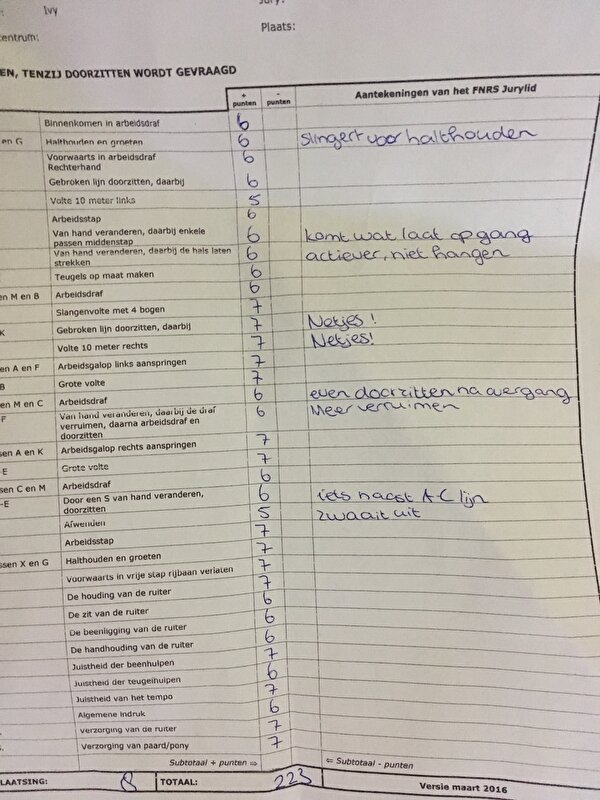 Ivy
Jury:
entrum:
Plaats:
EN, TENZIJ DOORZITTEN WORDT GEVRAAGD
+ punten
- punten
Aantekeningen van het FNRS Jurylid
Binnenkomen in arbeidsdraf 6
en G Halthouden en groeten 6 Slingert voor halthouden
Voorwaarts in arbeidsdraf 6
Rechterhand
Gebroken lijn doorzitten, daarbij 6
Volte 10 meter links 5
Arbeidsstap 6
Van hand veranderen, daarbij enkele 6 komt wat laat op gang
passen middenstap
Van hand veranderen, daarbij de hals laten 6 actiever, niet hangen
strekken
Teugels op maat maken 6
en M en B Arbeidsdraf 6
Slangenvolte met 4 bogen 7
K Gebroken lijn doorzitten, daarbij 7 Netjes!
Volte 10 meter rechts 7 Netjes!
en A en F Arbeidsgalop links aanspringen 7
B Grote volte 7
en M en C Arbeidsdraf 6 even doorzitten na overgang
F Van hand veranderen, daarbij de draf 6 Meer verruimen
verruimen, daarna arbeidsdraf en
doorzitten
sen A en K Arbeidsgalop rechts aanspringen 7
-E Grote volte 7
sen C en M Arbeidsdraf 6
-E Door een S van hand veranderen, 6 iets naast A-C lijn
doorzitten
Afwenden 5 zwaait uit
Arbeidsstap 7
ssen X en G Halthouden en groeten 7
Voorwaarts in vrije stap rijbaan verlaten 7
De houding van de ruiter 7
De zit van de ruiter 6
De beenligging van de ruiter 6
De handhouding van de ruiter 6
Juistheid der beenhulpen 7
Juistheid der teugelhulpen 6
Juistheid van het tempo 7
Algemene indruk 6
Verzorging van de ruiter 7
Verzorging van paard/pony 7
Subtotaal + punten ⇒
⇐ Subtotaal - punten
LAATSING: 8 TOTAAL: 223
Versie maart 2016